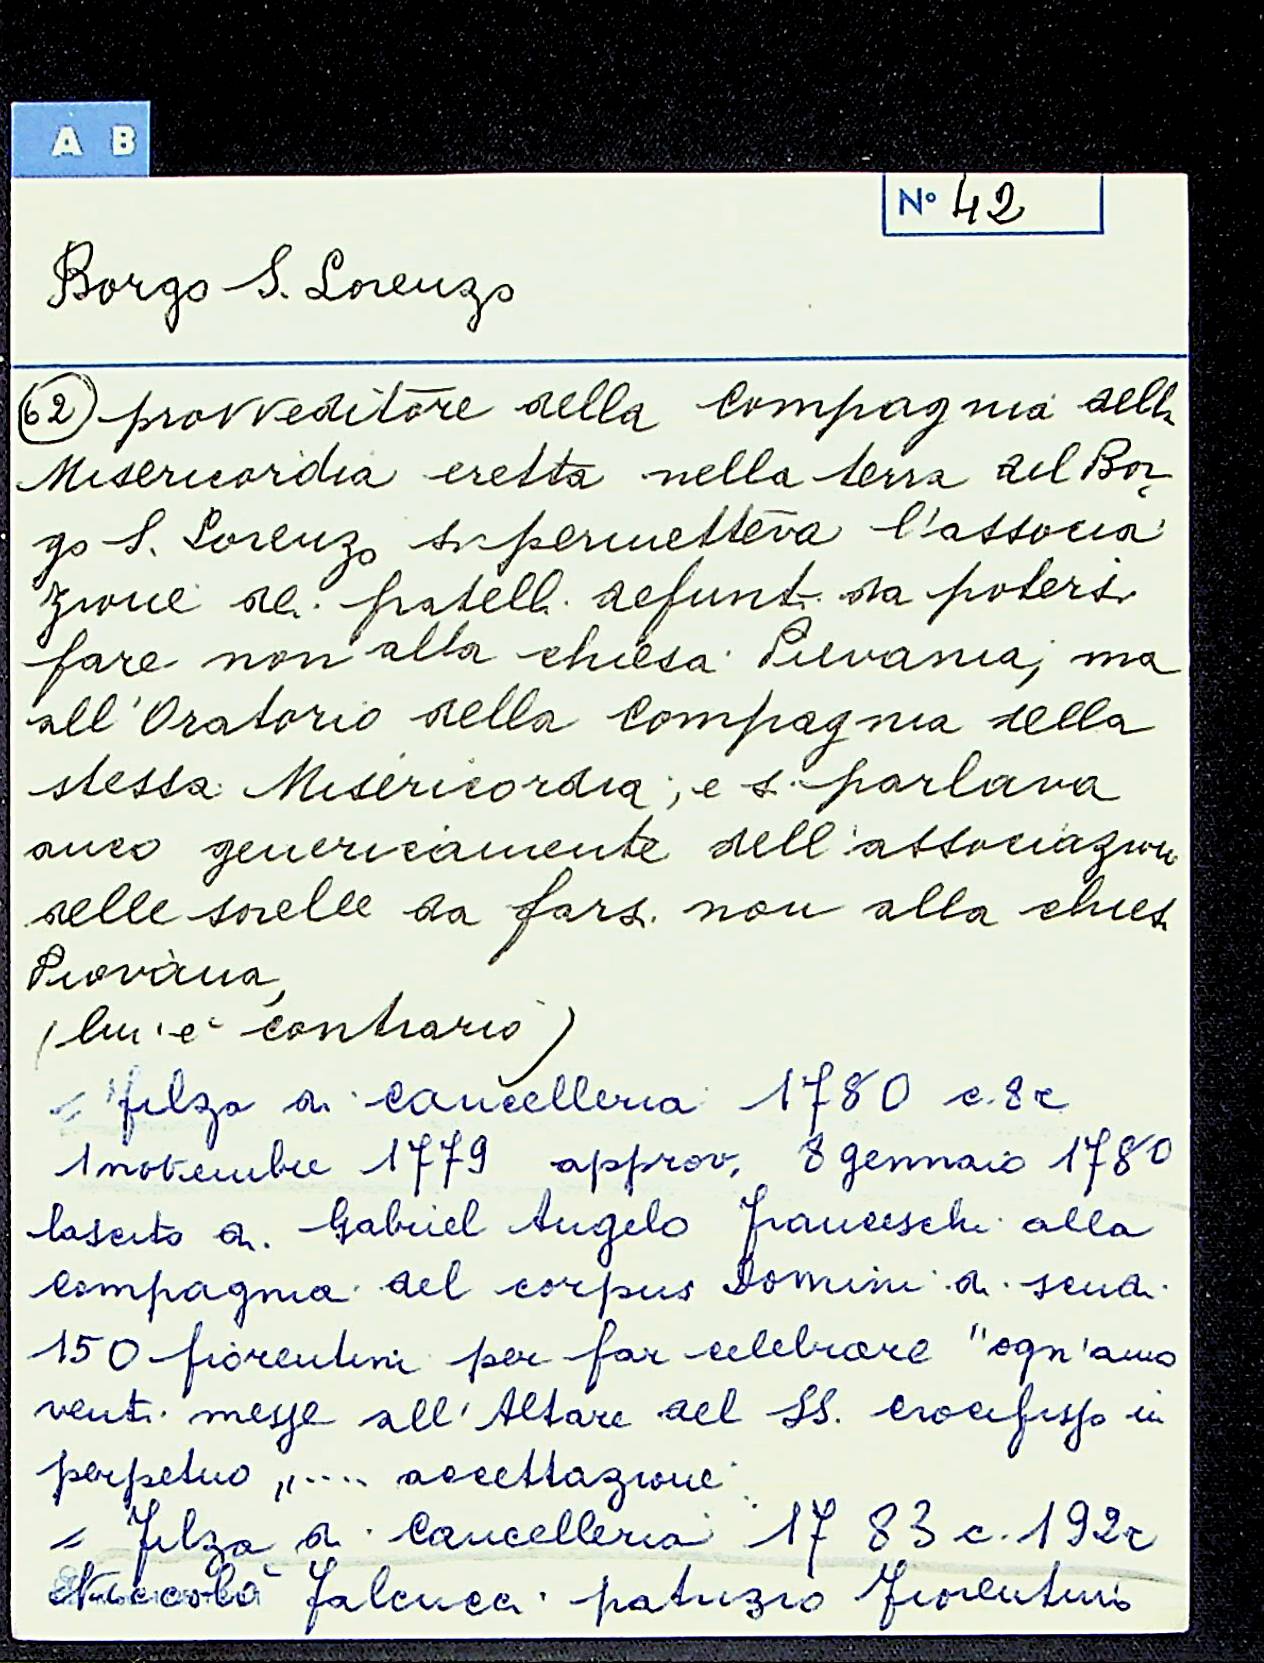 A B
N° 42
Borgo S. Lorenzo
(62) provveditore della Compagnia della
Misericordia eretta nella terra del Bor
go S. Lorenzo si permetteva l'associa
zione dei fratelli defunti da potersi
fare non alla chiesa Pievania, ma
all'Oratorio della Compagnia della
stessa Misericordia; e si parlava
anco genericamente dell'associazione
delle sorelle da farsi non alla chiesa
Piovana,
(lui è contrario)
= Filza di cancelleria 1780 c. 8r
1 novembre 1779 approv. 8 gennaio 1780
lascito di Gabriel Angelo Franceschi alla
compagnia del corpus Domini di scudi
150 fiorentini per far celebrare "ogn'anno
venti messe all'Altare del SS. crocifisso in
perpetuo „.... accettazione
= Filza di Cancelleria 1783 c. 192r
Niccolò Falcucci patrizio Fiorentino